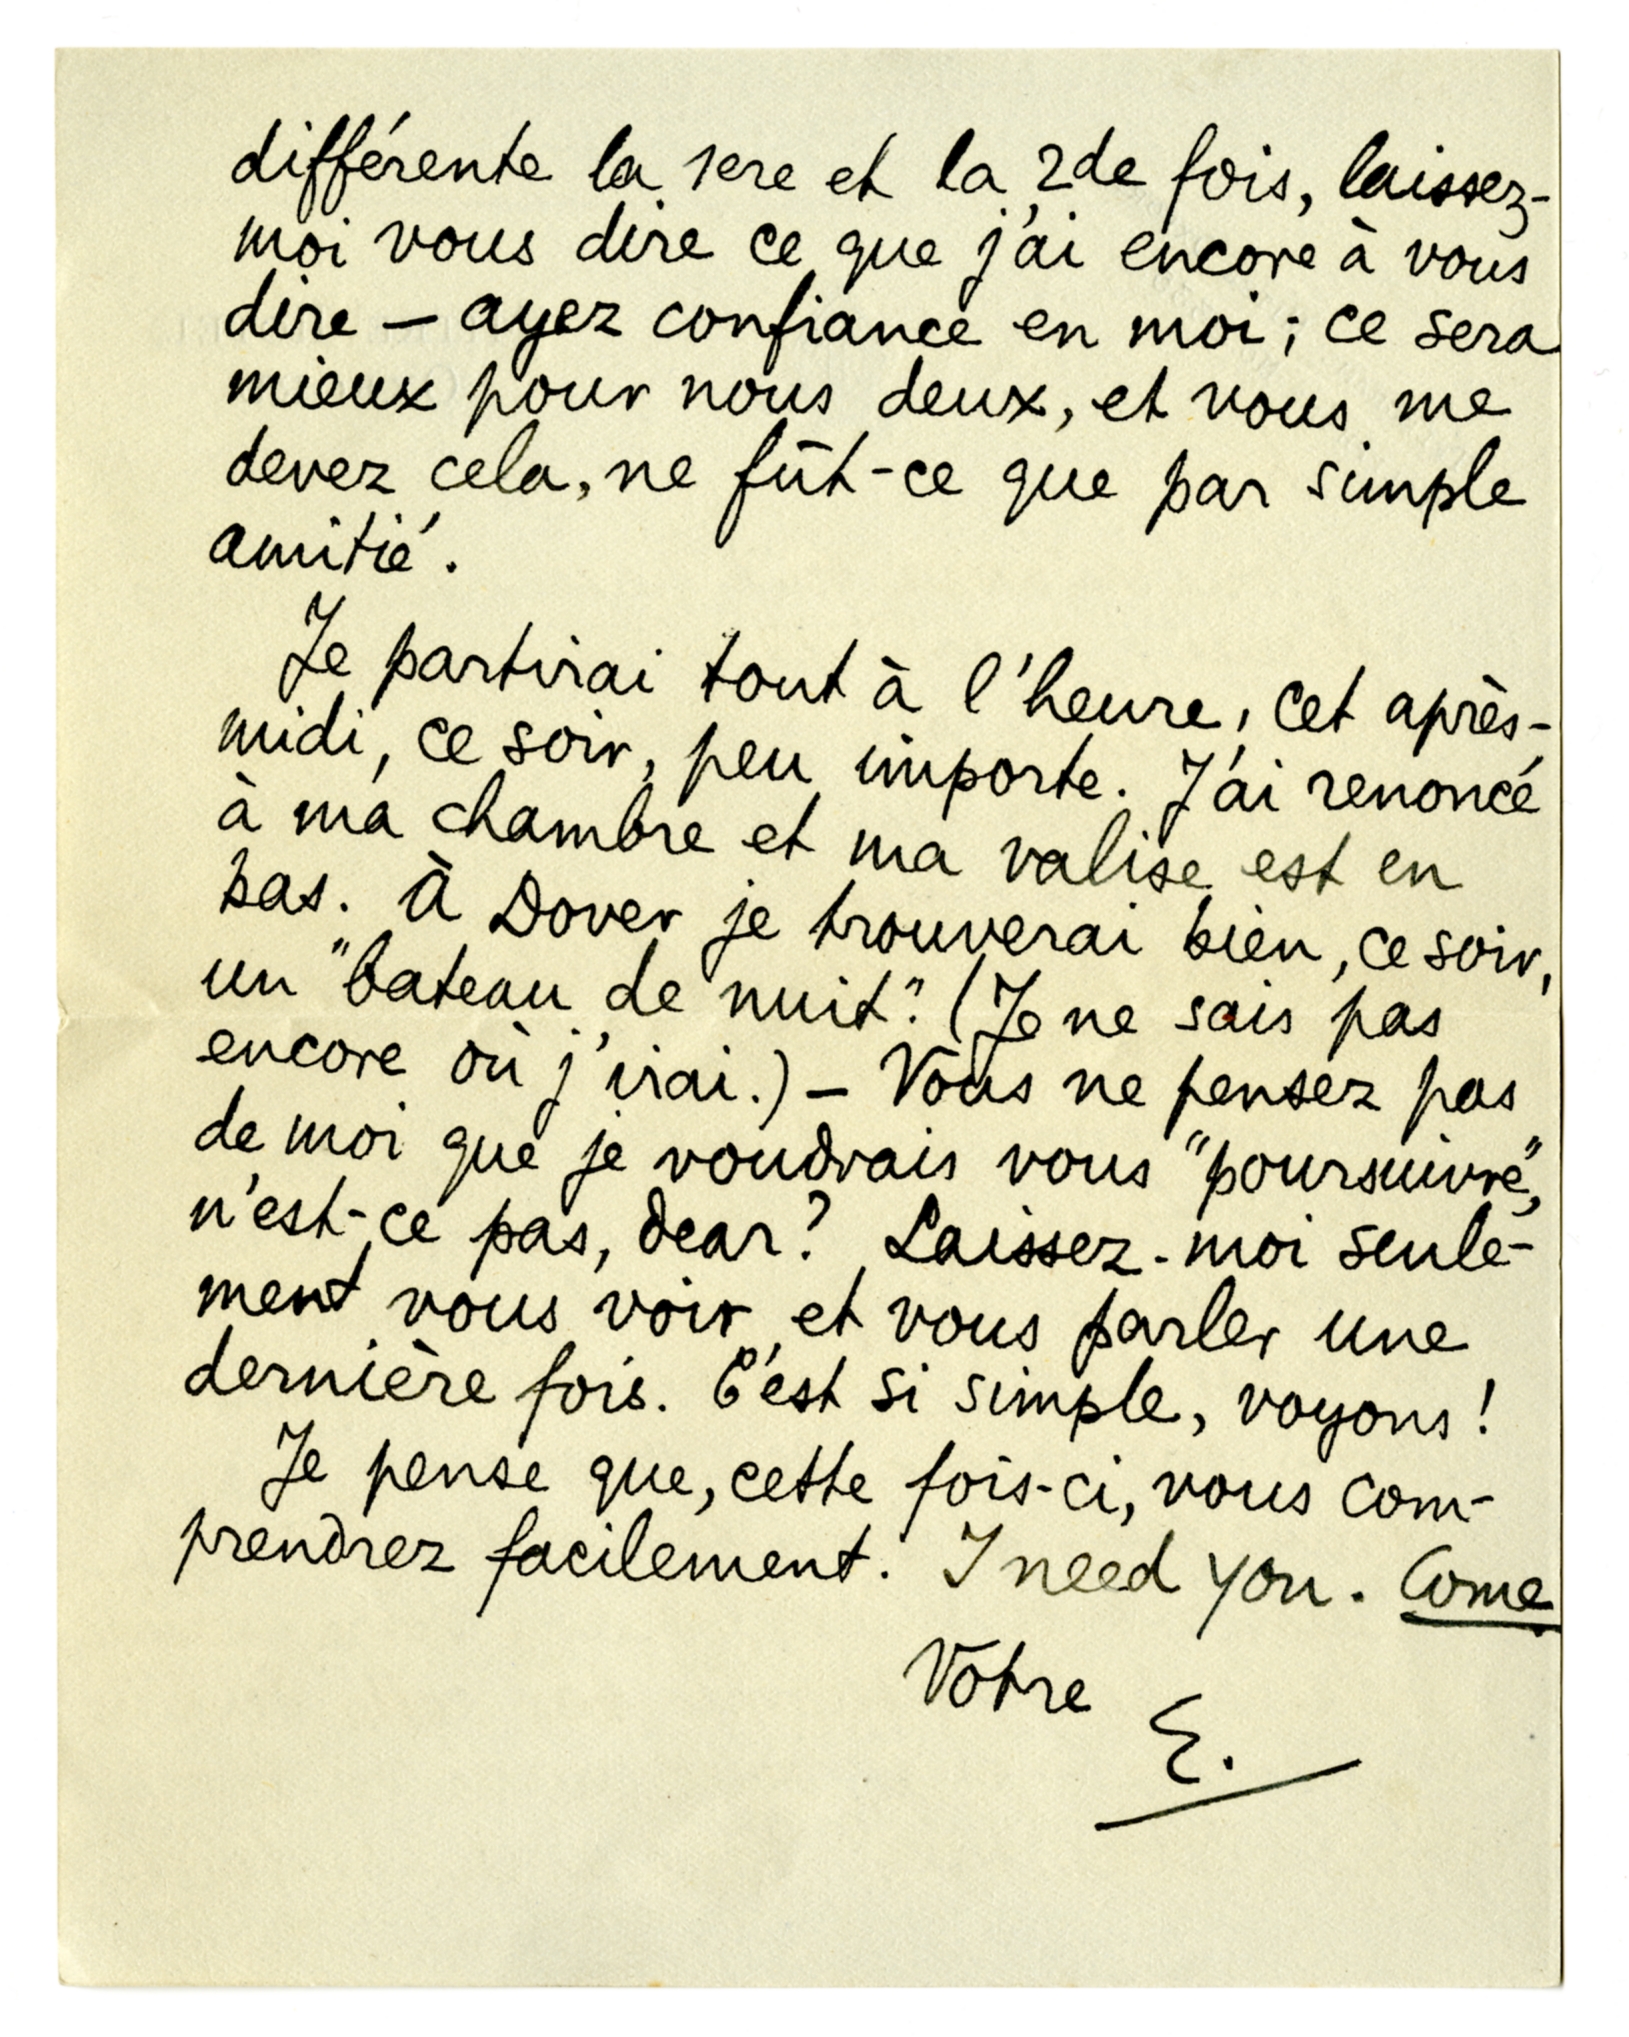 différente la 1ere et la 2de fois, laissez-
moi vous dire ce que j'ai encore à vous
dire — ayez confiance en moi ; ce sera
mieux pour nous deux, et vous me
devez cela, ne fût-ce que par simple
amitié.
Je partirai tout à l'heure, cet après-
midi, ce soir, peu importe. J'ai renoncé
à ma chambre et ma valise est en
bas. À Dover je trouverai bien, ce soir,
un "bateau de nuit". (Je ne sais pas
encore où j'irai.) — Vous ne pensez pas
de moi que je voudrais vous "poursuivre",
n'est-ce pas, dear? Laissez-moi seule-
ment vous voir et vous parler une
dernière fois. C'est si simple, voyons!
Je pense que, cette fois-ci, vous com-
prendrez facilement. I need you. Come
Votre
E.